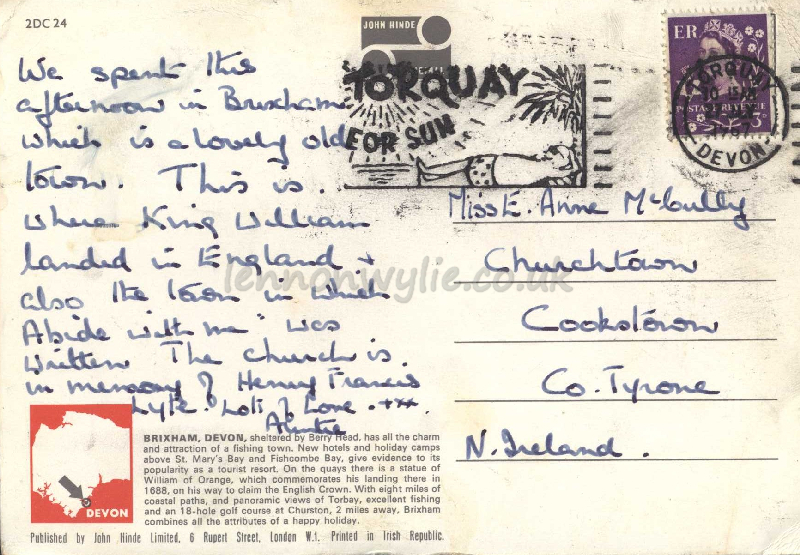 2DC 24
JOHN HINDE
ER
POSTAGE REVENUE
3D
TORQUAY
FOR SUN
TORQUAY
DEVON
We spent this
afternoon in Brixham
which is a lovely old
town. This is
where King William
landed in England +
also the town in which
Abide with me" was
written The church is
in memory of Henry Francis
Lyte. Lots of Love. +xx.
Auntie
Miss E. Anne McCully
Churchtown
Cookstown
Co. Tyrone
N. Ireland.
lennonwylie.co.uk
DEVON
BRIXHAM, DEVON, sheltered by Berry Head, has all the charm
and attraction of a fishing town. New hotels and holiday camps
above St. Mary's Bay and Fishcombe Bay, give evidence to its
popularity as a tourist resort. On the quays there is a statue of
William of Orange, which commemorates his landing there in
1688, on his way to claim the English Crown. With eight miles of
coastal paths, and panoramic views of Torbay, excellent fishing
and an 18-hole golf course at Churston, 2 miles away, Brixham
combines all the attributes of a happy holiday.
Published by John Hinde Limited, 6 Rupert Street, London W.1. Printed in Irish Republic.